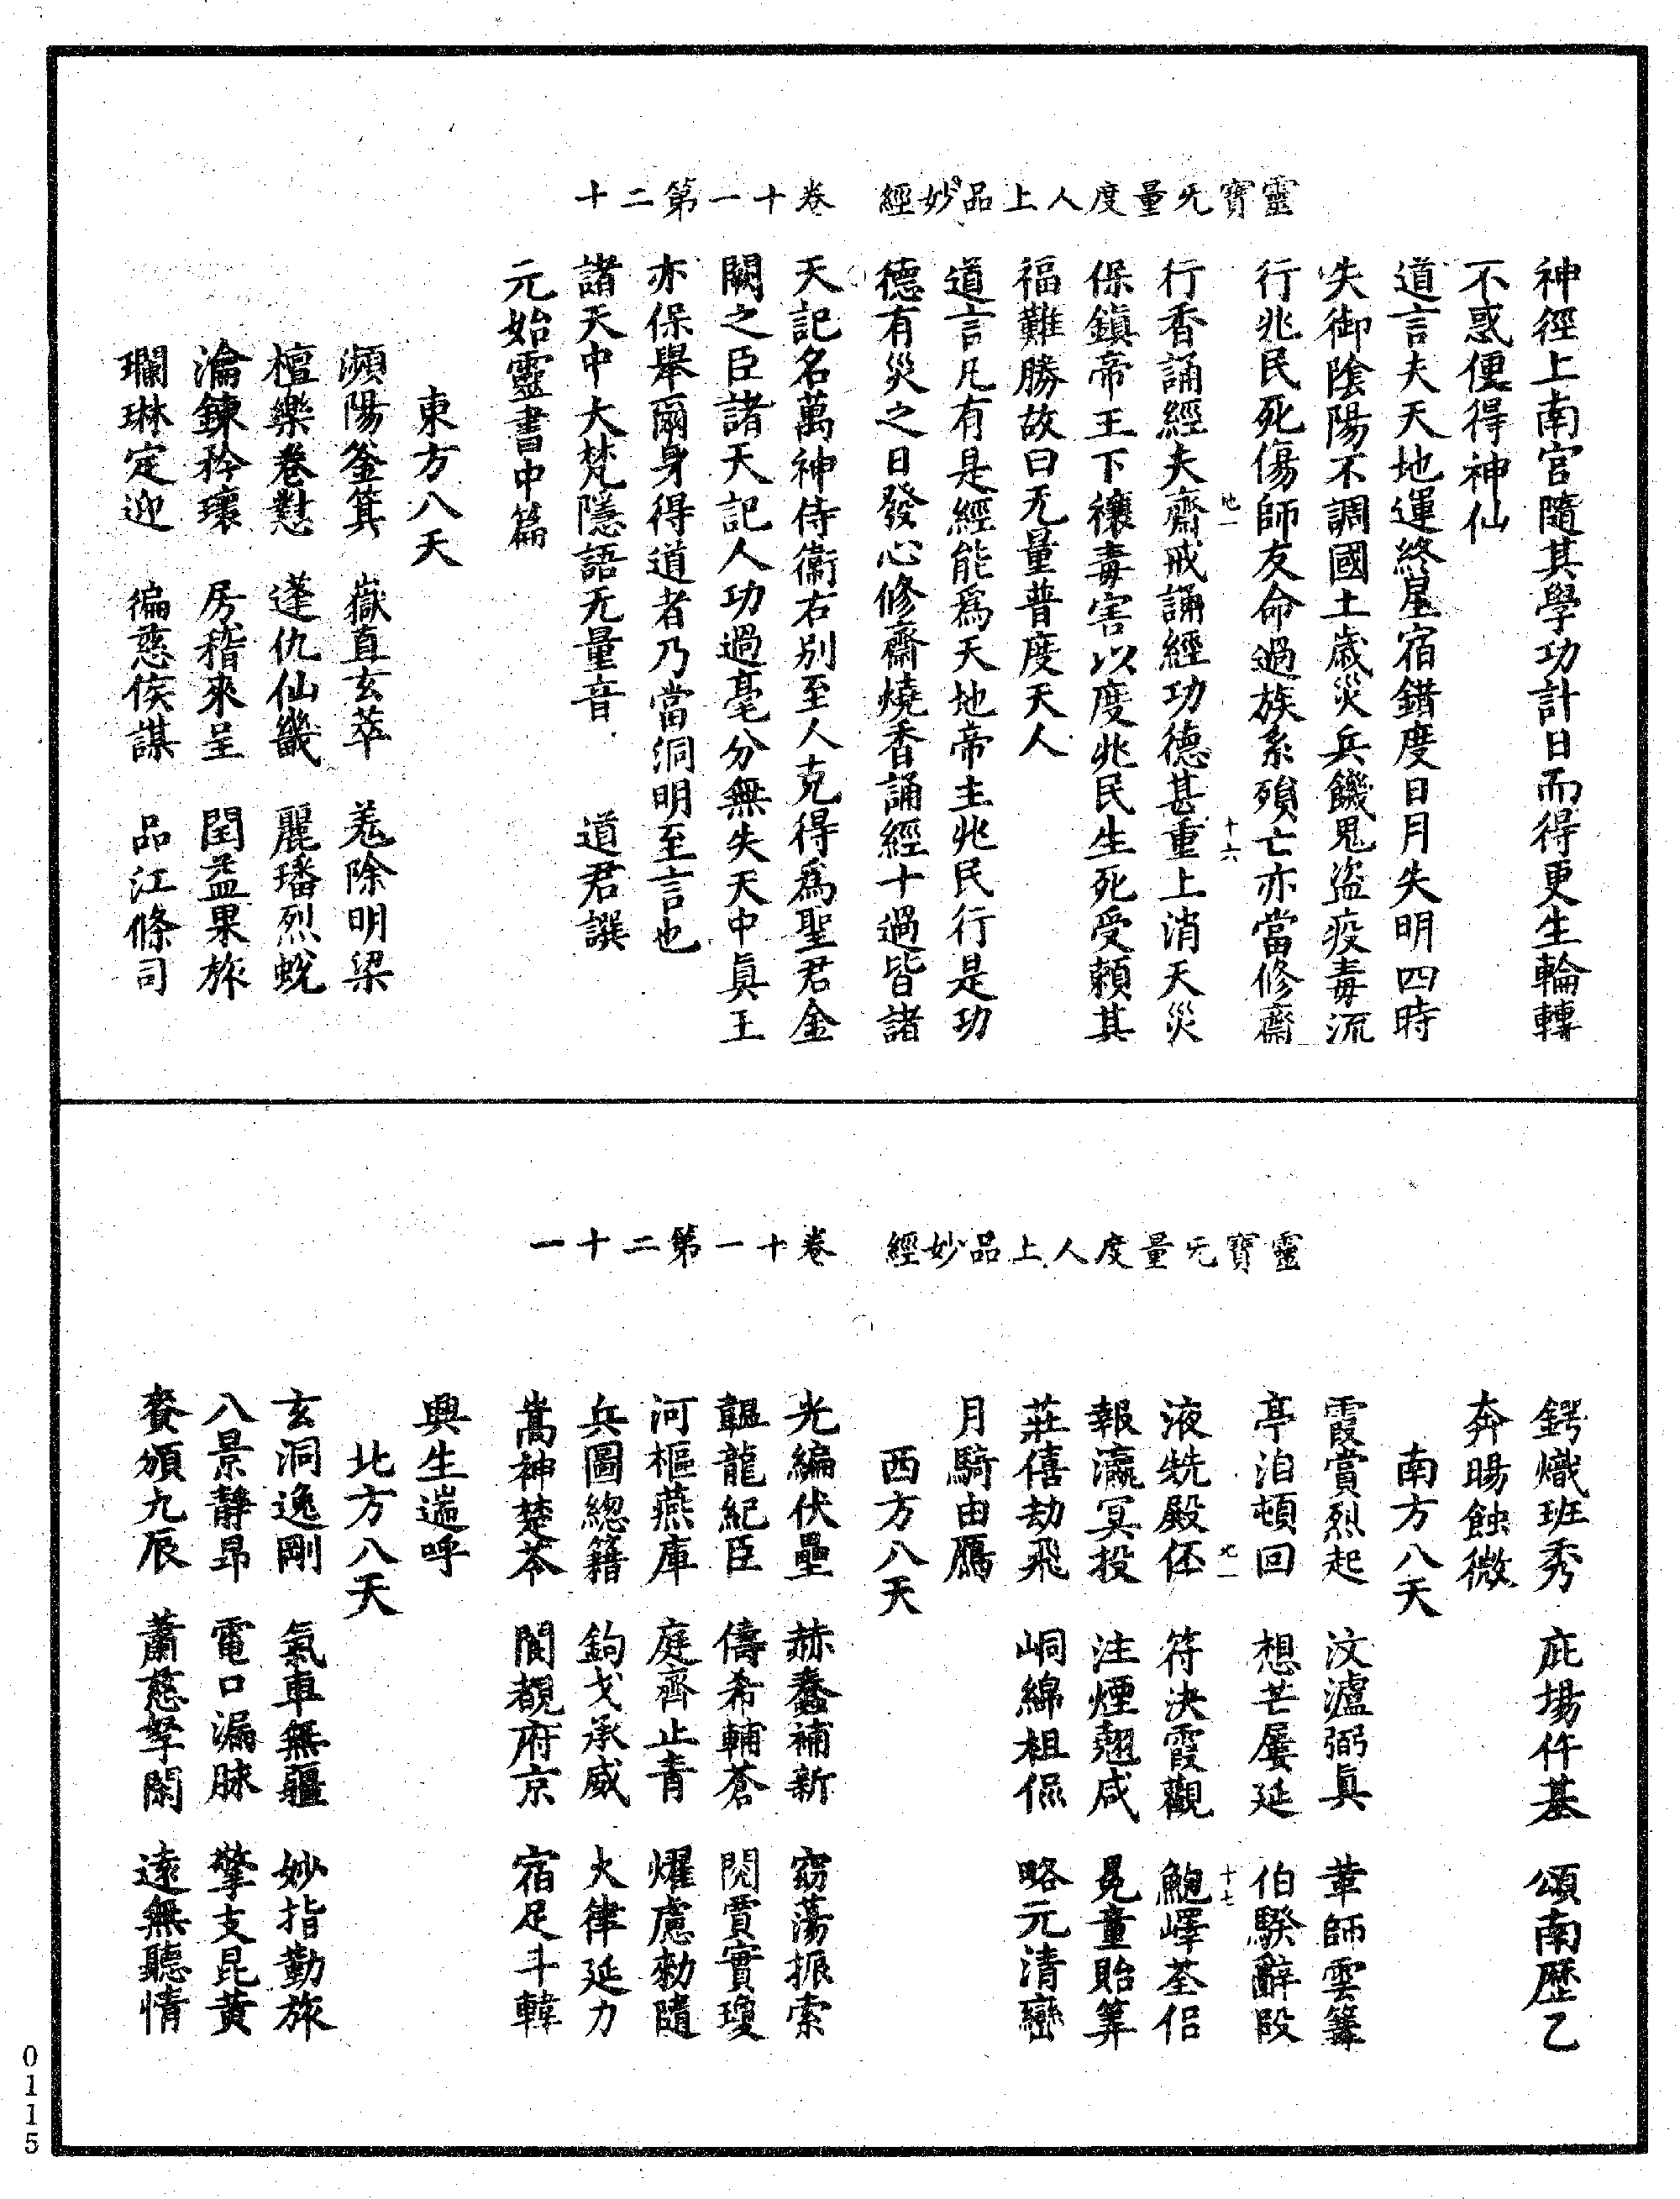 靈寶无量度人上品妙經　卷十一第二十
神徑上南宮隨其學功計日而得更生輪轉
不惑便得神仙
道言夫天地運終星宿錯度日月失明四時
失御陰陽不調國土歲災兵饑鬼盜疫毒流
行兆民死傷師友命過族系殞亡亦當修齋
地一　十六
行香誦經夫齋戒誦經功德甚重上消天災
保鎮帝王下禳毒害以度兆民生死受賴其
福難勝故曰无量普度天人
道言凡有是經能爲天地帝主兆民行是功
德有災之日發心修齋燒香誦經十過皆諸
天記名萬神侍衞右別至人克得爲聖君金
闕之臣諸天記人功過毫分無失天中眞王
亦保舉爾身得道者乃當洞明至言也
諸天中大梵隱語无量音　道君譔
元始靈書中篇
東方八天
瀕陽釜箕　嶽直玄萃　羗除明梁
檀樂卷懟　蓬仇仙畿　麗璠烈蛻
瀹鍊矜瓌　房稽來呈　閏孟果旅
瓓琳定迎　徧慈俟謀　品江條司
靈寶无量度人上品妙經　卷十一第二十一
鍔熾班秀　庇場仵基　頌南歷乙
奔暘蝕微
南方八天
霞賞烈起　汶瀘弼眞　葦師雲篝
亭洎頓回　想芒屢延　伯騤辭段
地一　十七
液兟殿伾　符決霞觀　鮑嶧荃侣
報瀛冥投　注煙翹咸　晃童貽筭
莊僖劫飛　峒綿柤侃　略元清巒
月騎由鴈
西方八天
光編伏壘　赫蠢補新　窈蕩振索
韞龍紀臣　儔希輔蒼　閱賈實瓊
河樞燕庫　庭齊止青　燿慮勑隨
兵圖總籍　鉤戈承威　火律延力
嵩神楚苓　閬覩府京　宿足斗韓
興生遄呼
北方八天
玄洞逸剛　氣車無疆　妙指勤旅
八景靜昂　電口漏脉　擎支昆黃
賚頒九辰　蕭慈孥閑　遠無聽情
0115